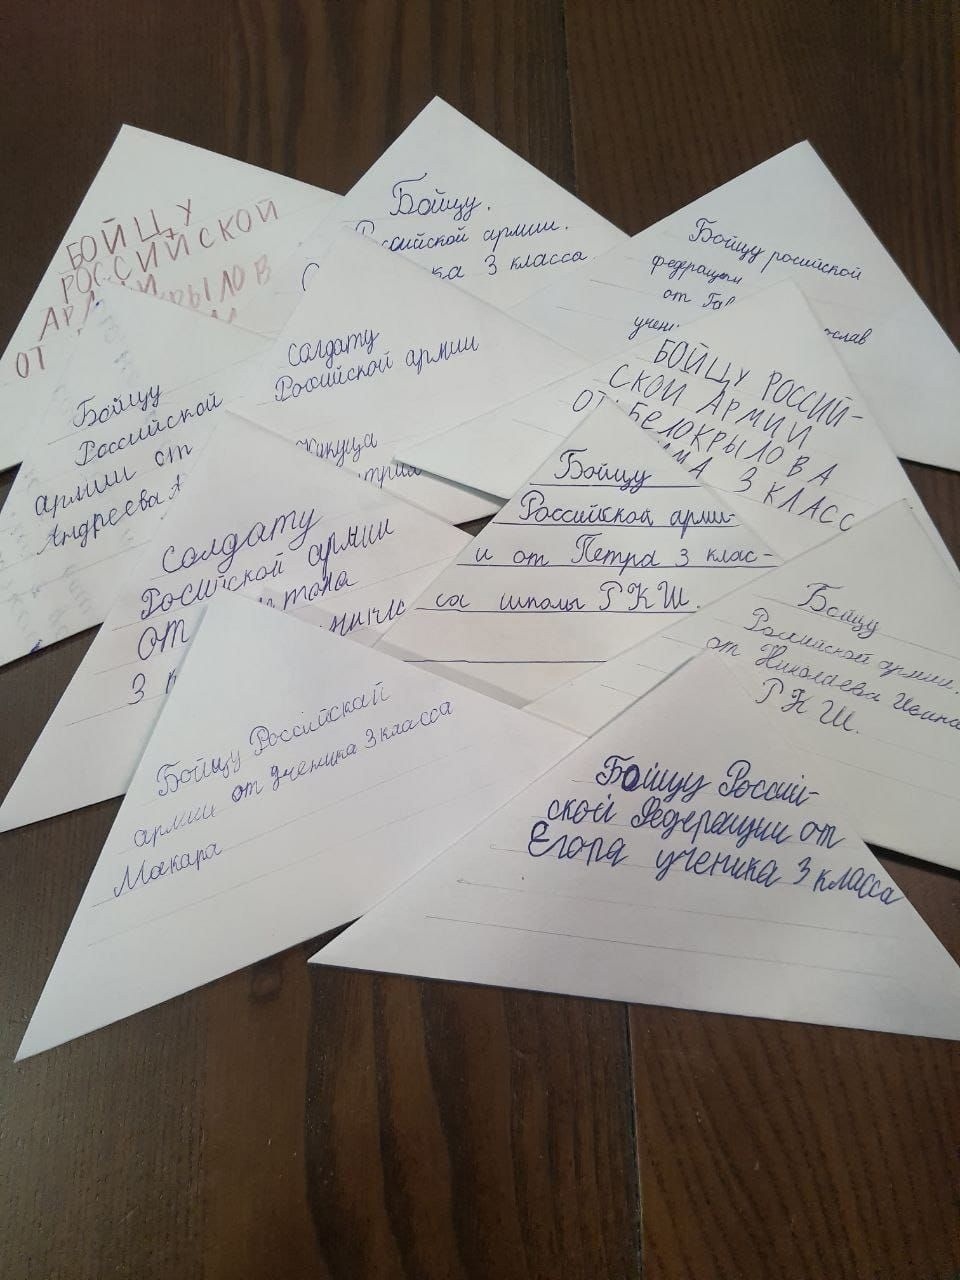 БОЙЦУ
РОССИЙСКОЙ
АРМИИ
ОТ КРЫЛОВ
Бойцу.
Российской армии.
3 класса
Бойцу росийской
федерацыи
от
слав
Бойцу
Российской
армии от
Андреева
Солдату
Российской армии
БОЙЦУ РОССИЙ-
СКОЙ АРМИИ
ОТ БЕЛОКРЫЛОВА
3 КЛАСС
Солдату
Росийской армии
от
3
Бойцу
Российской арми-
и от Петра 3 клас-
са школы РКШ.
Бойцу
Российской армии.
от Николаева Ивана
РКШ.
Бойцу Российскай
армии от ученика 3 класса
Макара
Бойцу Россий-
ской Федерации от
Егора ученика 3 класса